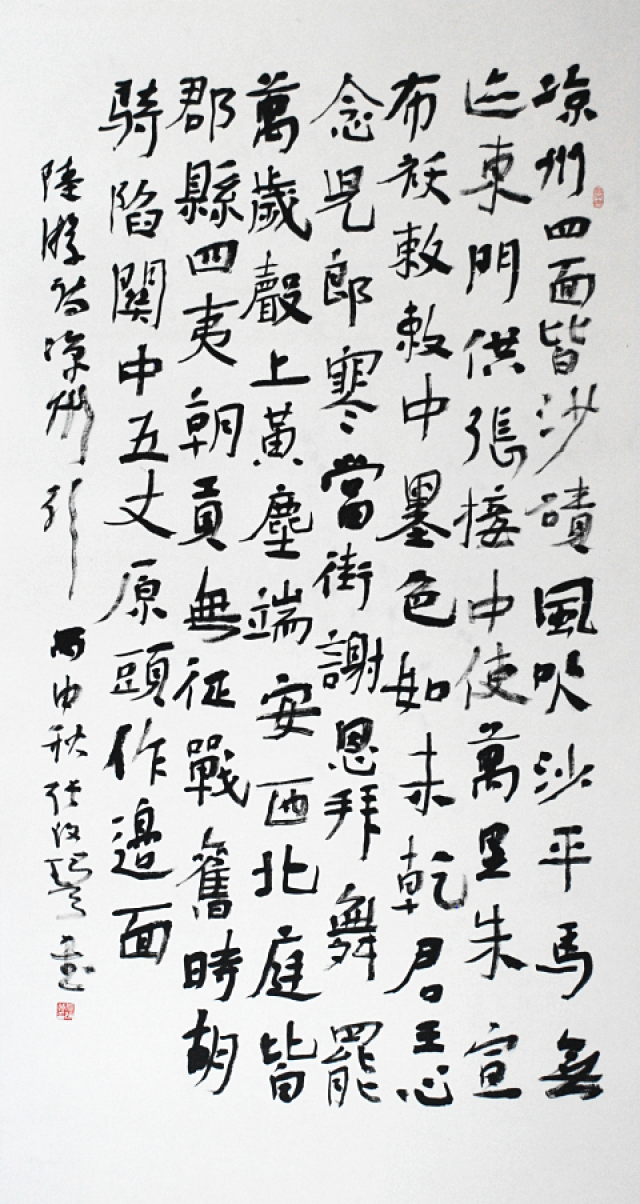 涼州四面皆沙磧風吹沙平馬無
迹東門供張接中使萬里朱宣
布袄敕敕中墨色如未乾君王心
念兒郎寒當街謝恩拜舞罷
萬歲聲上黃塵端安西北庭皆
郡縣四夷朝貢無征戰舊時胡
騎陷關中五丈原頭作邊面
陸游詩涼州行 丙申秋張改琴書